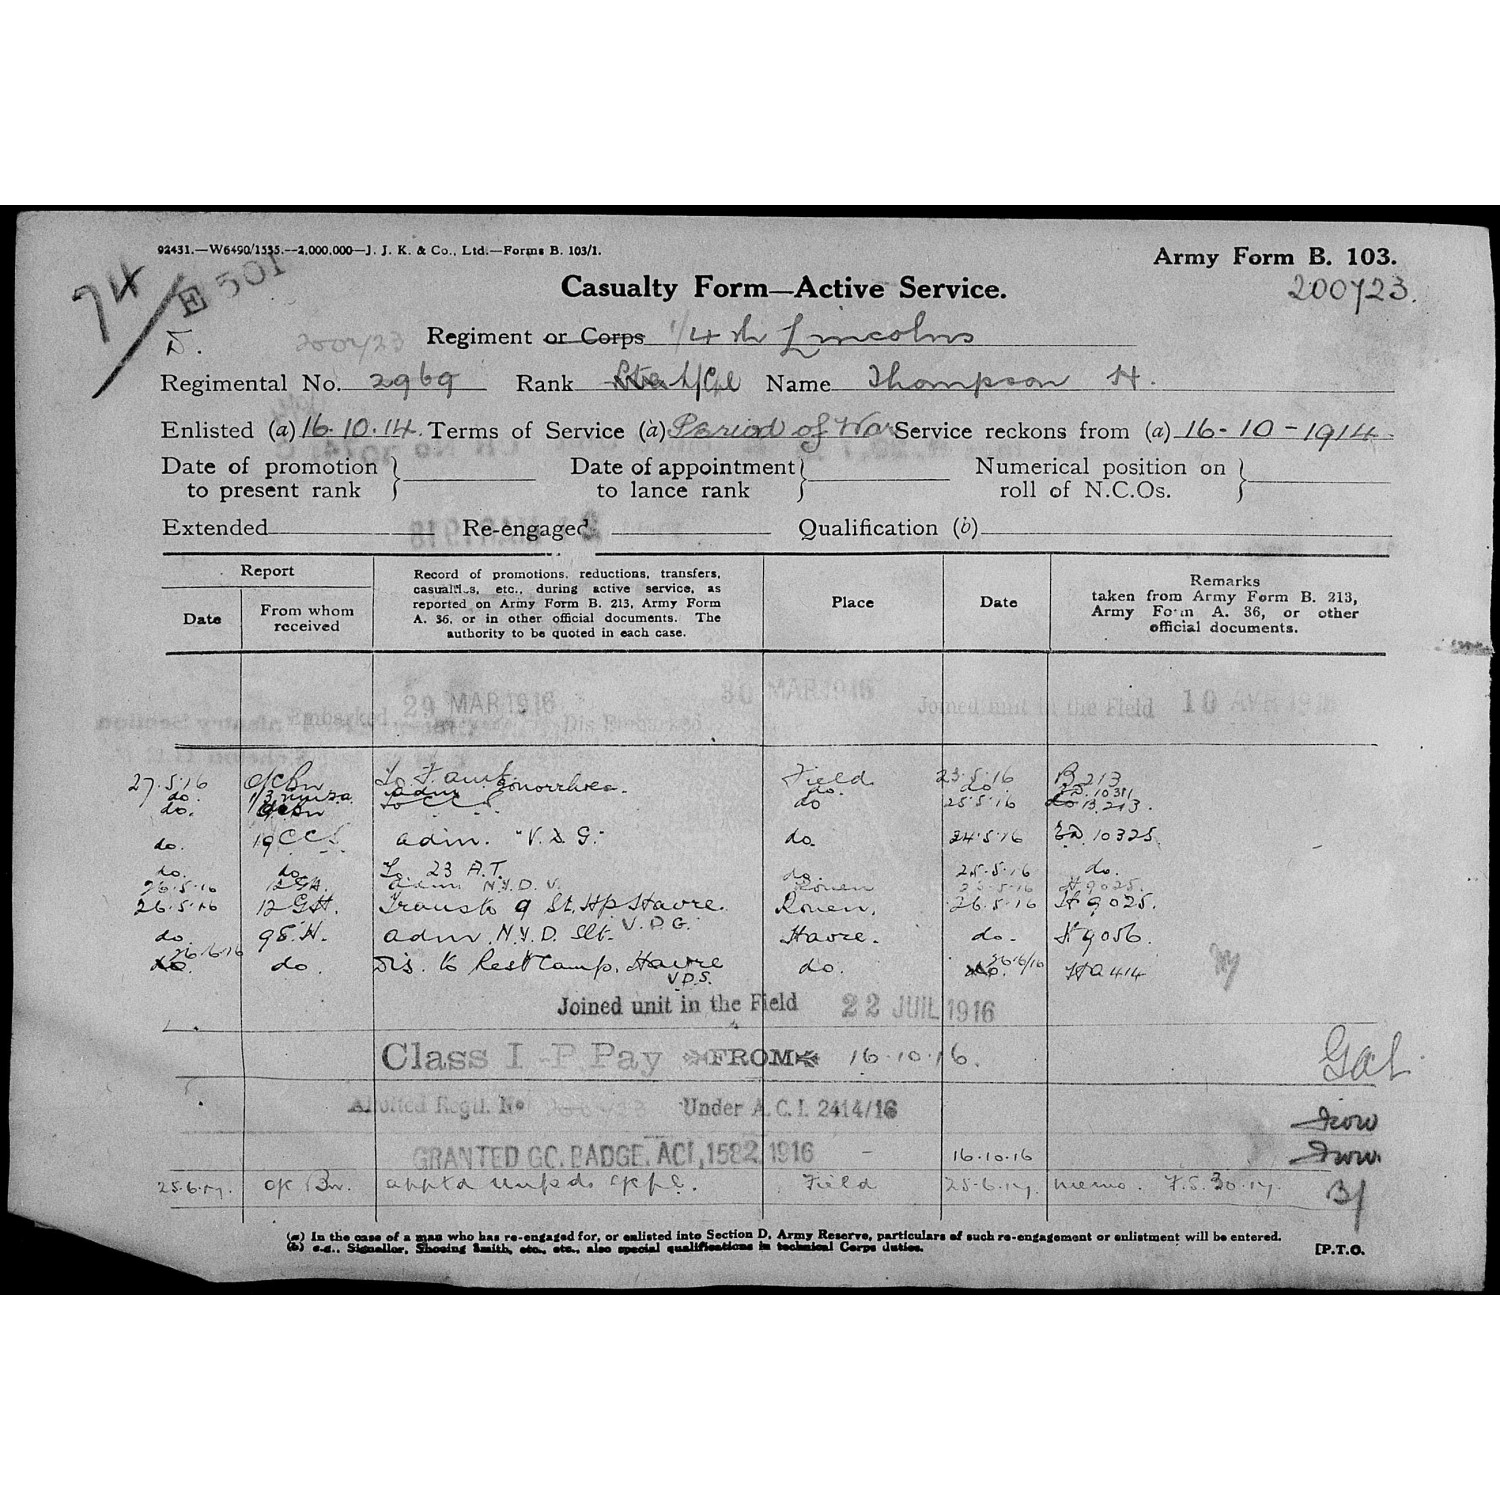 92431.—W6490/1535.—2,000,000—J. J. K. & Co., Ltd.—Forms B. 103/1.
Army Form B. 103.
74
E 501
Casualty Form—Active Service.
200723.
D. 200723 Regiment or Corps 1/4th Lincolns
Regimental No. 2969 Rank Pte L/Cpl Name Thompson H.
Enlisted (a) 16.10.14. Terms of Service (a) Period of War Service reckons from (a) 16-10-1914.
Date of promotion to present rank } Date of appointment to lance rank } Numerical position on roll of N.C.Os. }
Extended Re-engaged Qualification (b)
Report
Date From whom received
Record of promotions, reductions, transfers, casualties, etc., during active service, as reported on Army Form B. 213, Army Form A. 36, or in other official documents. The authority to be quoted in each case.
Place Date
Remarks taken from Army Form B. 213, Army Form A. 36, or other official documents.
Embarked 29 MAR 1916 Dis Embarked 30 MAR 1916 Joined unit in the Field 10 AVR 1916
27.5.16 O/C Bn To F. amb. Field 23.5.16 B213
do. 1/3 adm Gonorrhoea. do. do 10381
do. To CCS do 25.5.16 B.213.
do. 19 CCS adm. "V.D.G." do. 24.5.16 ED. 10325
do. do. To 23 A.T. do. 25.5.16 do.
26.5.16 12 GH. adm N.Y.D. V. Rouen 25.5.16 H 9025.
26.5.16 12 GH. Trans to 9 St. Hp Havre. Rouen. 26.5.16 H 9025.
do. 9 S.H. adm. N.Y.D. Slt. V.D.G. Havre. do. H 9056.
26.6.16 do. Dis. to Rest Camp. Havre V.D.S. do. 26/6/16 HA414
Joined unit in the Field 22 JUIL 1916
Class I -P. Pay FROM 16.10.16.
Allotted Regtl. No 200723 Under A.C.I. 2414/16
GRANTED GC. BADGE. ACI, 1582, 1916 - 16.10.16
25.6.17. O/C Bn. apptd unpd L/Cpl. Field 25.6.17. memo. F.S. 30.17.
(a) In the case of a man who has re-engaged for, or enlisted into Section D, Army Reserve, particulars of such re-engagement or enlistment will be entered.
(b) e.g., Signaller, Shoeing Smith, etc., etc., also special qualifications in technical Corps duties.
[P.T.O.